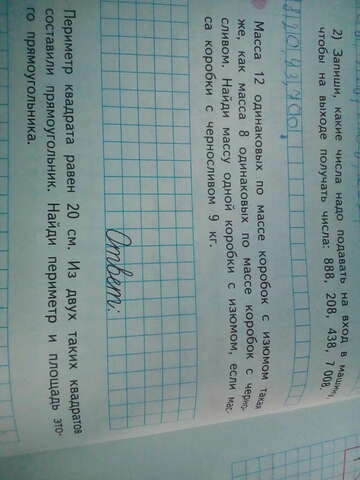 2) Запиши, какие числа надо подавать на вход в машину,
чтобы на выходе получать числа: 888, 208, 438, 7 008,
Масса 12 одинаковых по массе коробок с изюмом такая
же, как масса 8 одинаковых по массе коробок с черно-
сливом. Найди массу одной коробки с изюмом, если мас-
са коробки с черносливом 9 кг.
Ответ:
Периметр квадрата равен 20 см. Из двух таких квадратов
составили прямоугольник. Найди периметр и площадь это-
го прямоугольника.